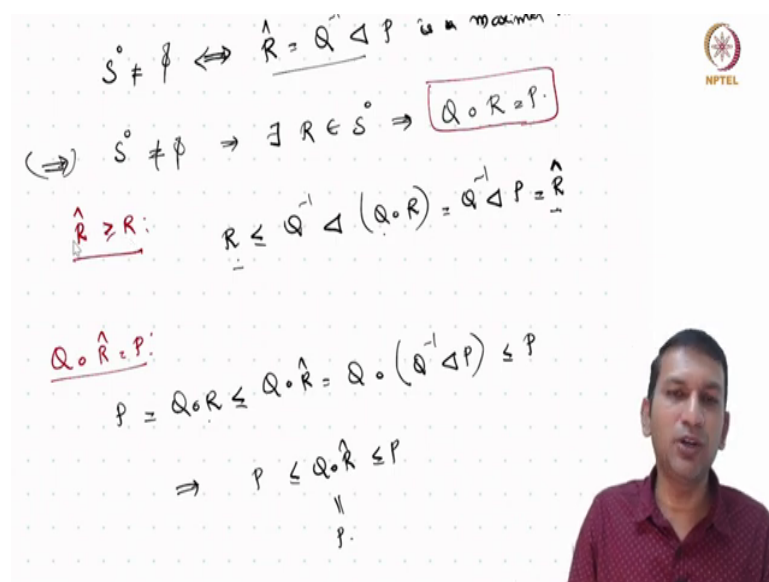 S° ≠ ϕ ⇔ R̂ = Q⁻¹ ◁ P is a maximal
NPTEL
(⇒) S° ≠ ϕ ⇒ ∃ R ∈ S° ⇒ Q ∘ R = P.
R̂ ≥ R: R ≤ Q⁻¹ ◁ (Q ∘ R) = Q⁻¹ ◁ P = R̂
Q ∘ R̂ = P:
P = Q ∘ R ≤ Q ∘ R̂ = Q ∘ (Q⁻¹ ◁ P) ≤ P
⇒ P ≤ Q ∘ R̂ ≤ P
||
P.